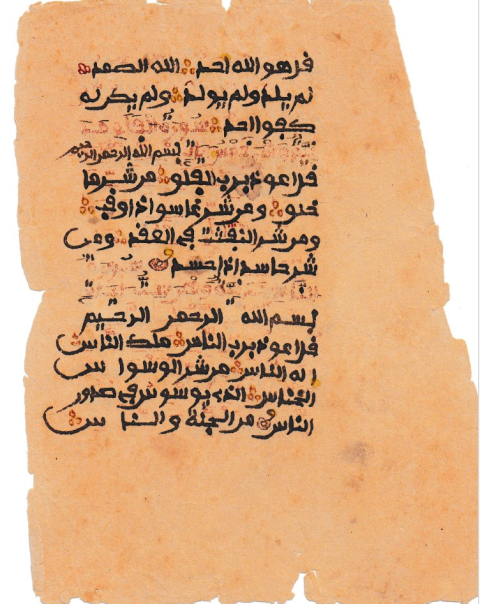 قل هو الله احد الله الصمد
لم يلد ولم يولد ولم يكن له
كفوا احد
بسم الله الرحمن الرحيم
قل اعوذ برب الفلق من شر ما
خلق ومن شر غاسق اذا وقب
ومن شر النفثت في العقد ومن
شر حاسد اذا حسد
بسم الله الرحمن الرحيم
قل اعوذ برب الناس ملك الناس
اله الناس من شر الوسواس
الخناس الذي يوسوس في صدور
الناس من الجنة والناس